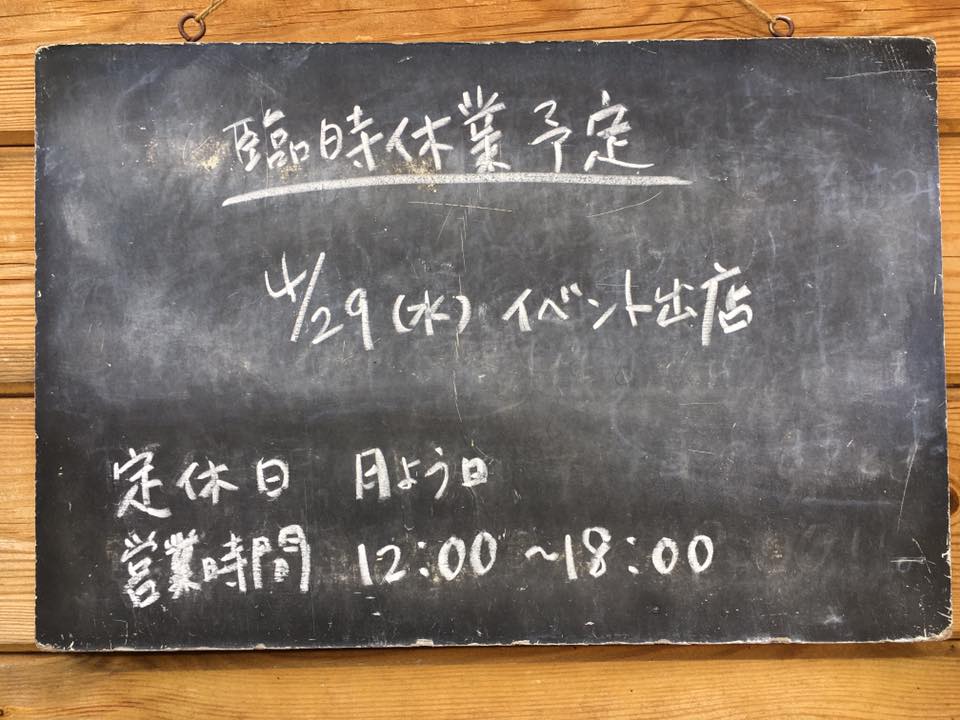 臨時休業予定
4/29(水) イベント出店
定休日 月よう日
営業時間 12:00~18:00